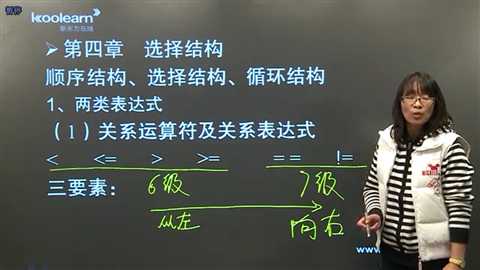 koolearn
新东方在线
第四章 选择结构
顺序结构、选择结构、循环结构
1、两类表达式
（1）关系运算符及关系表达式
< <= > >= == !=
三要素： 6级 7级
从左 向右
www.